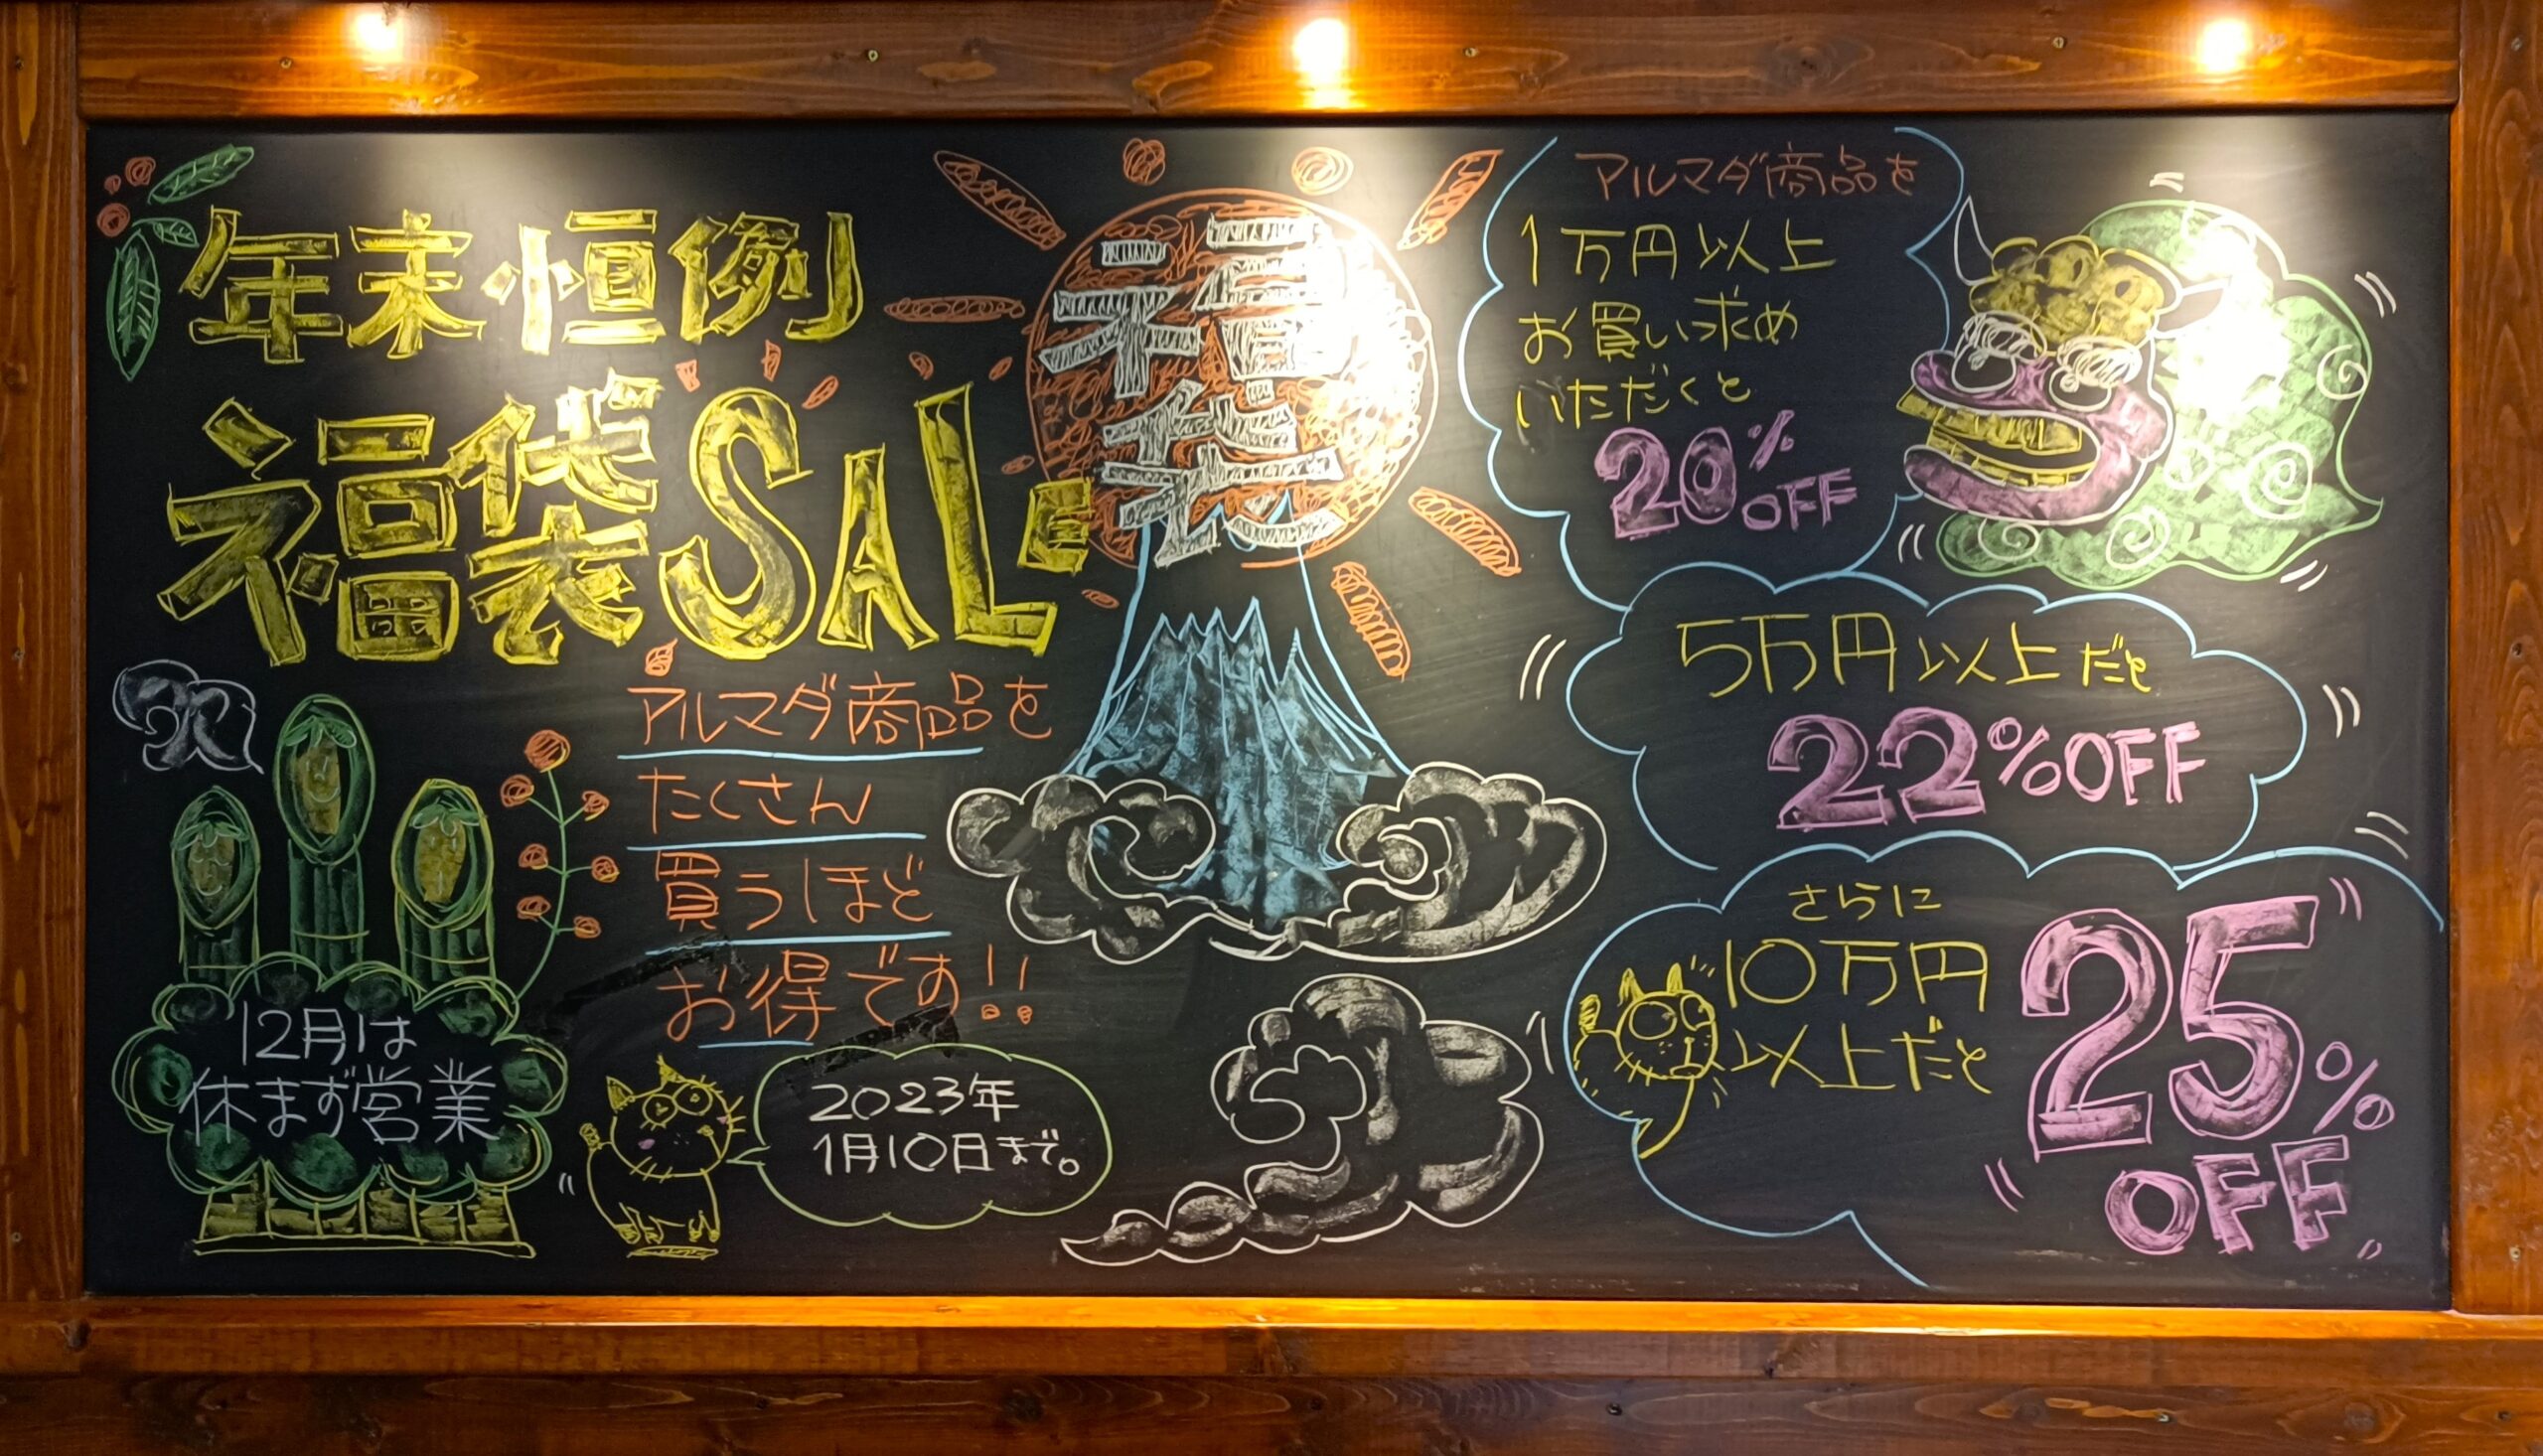 年末恒例
福袋SALE
福袋
アルマダ商品を
たくさん
買うほど
お得です!!
12月は
休まず営業
2023年
1月10日まで。
アルマダ商品を
1万円以上
お買い求め
いただくと
20%
OFF
5万円以上だと
22%OFF
さらに
10万円
以上だと
25%
OFF